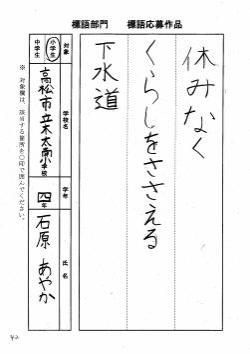 標語部門　標語応募作品
休みなく
くらしをささえる
下水道
対象
小学生
中学生
学校名
高松市立木太南小学校
学年
四年
氏名
石原 あやか
※ 対象欄は、該当する箇所を○印で囲んでください。
42